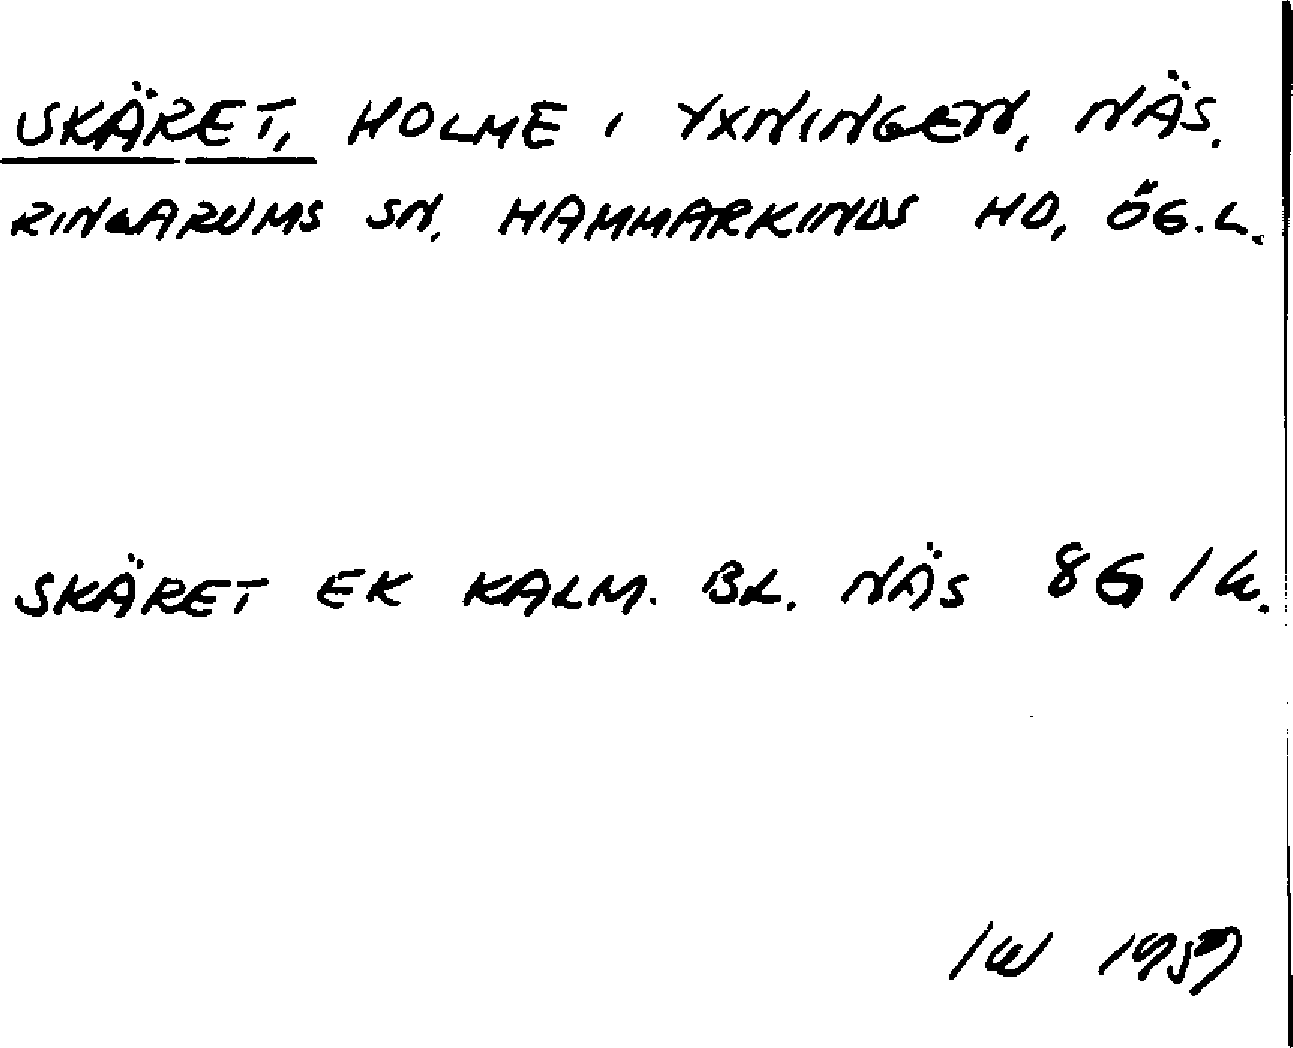 SKÄRET, HOLME I YXNINGEN, NÄS.
RINGARUMS SN, HAMMARKINDS HD, ÖG.L.
SKÄRET EK KALM. BL. NÄS 8G / W.
IW 1959